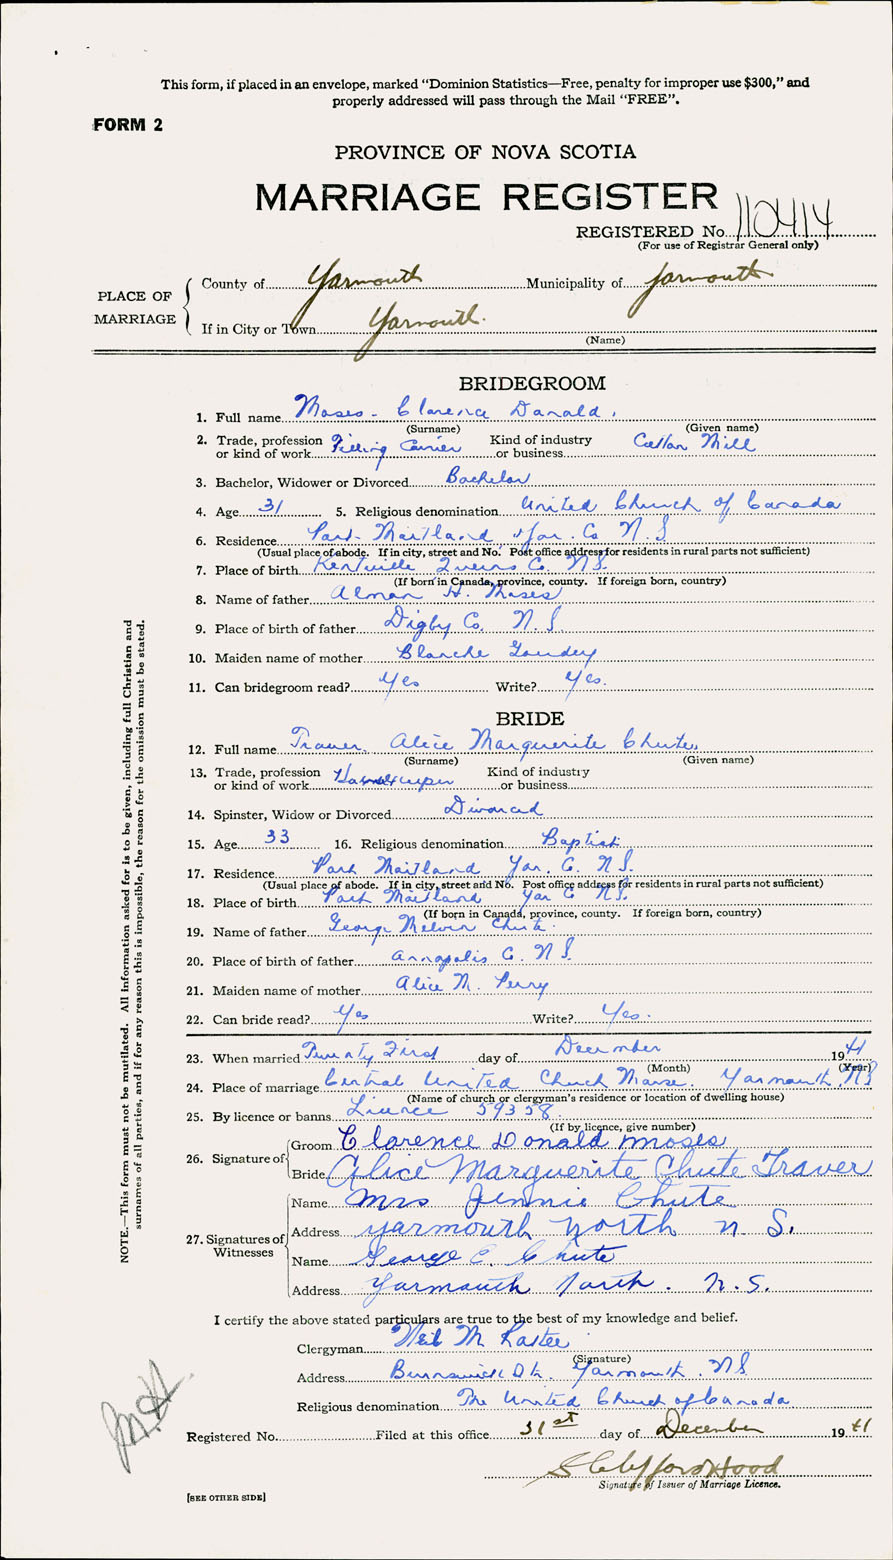 This form, if placed in an envelope, marked "Dominion Statistics—Free, penalty for improper use $300," and
properly addressed will pass through the Mail "FREE".
FORM 2
PROVINCE OF NOVA SCOTIA
MARRIAGE REGISTER
REGISTERED No. 110414
(For use of Registrar General only)
PLACE OF MARRIAGE
County of Yarmouth Municipality of Yarmouth
If in City or Town Yarmouth.
(Name)
BRIDEGROOM
1. Full name Moses - Clarence Donald.
(Surname) (Given name)
2. Trade, profession or kind of work Filling Carrier Kind of industry or business Cotton Mill
3. Bachelor, Widower or Divorced Bachelor
4. Age 31 5. Religious denomination United Church of Canada
6. Residence Port Maitland Yar. Co N.S.
(Usual place of abode. If in city, street and No. Post office address for residents in rural parts not sufficient)
7. Place of birth Kentville Co. N.S.
(If born in Canada, province, county. If foreign born, country)
8. Name of father H. Moses
9. Place of birth of father Digby Co. N.S.
10. Maiden name of mother Blanche Goudey
11. Can bridegroom read? Yes Write? Yes.
BRIDE
12. Full name Traver, Alice Marguerite Chute.
(Surname) (Given name)
13. Trade, profession or kind of work Housekeeper Kind of industry or business
14. Spinster, Widow or Divorced Divorced
15. Age 33 16. Religious denomination Baptist
17. Residence Port Maitland Yar. C. N.S.
(Usual place of abode. If in city, street and No. Post office address for residents in rural parts not sufficient)
18. Place of birth Port Maitland Yar C N.S.
(If born in Canada, province, county. If foreign born, country)
19. Name of father George Melvin Chute
20. Place of birth of father Annapolis C. N.S.
21. Maiden name of mother Alice M. Perry
22. Can bride read? Yes Write? Yes.
23. When married Twenty First day of December 1941
(Month) (Year)
24. Place of marriage Central United Church Manse. Yarmouth, N.S
(Name of church or clergyman's residence or location of dwelling house)
25. By licence or banns Licence 59358
(If by licence, give number)
26. Signature of
Groom Clarence Donald Moses
Bride Alice Marguerite Chute Traver
27. Signatures of Witnesses
Name Mrs Jennie Chute
Address Yarmouth North N S.
Name George C. Chute
Address Yarmouth North. N.S.
I certify the above stated particulars are true to the best of my knowledge and belief.
Clergyman Neil M
(Signature)
Address Brunswick St. Yarmouth. N.S
Religious denomination The United Church of Canada
Registered No. Filed at this office 31st day of December 1941
S Clifford Hood
Signature of Issuer of Marriage Licence.
[SEE OTHER SIDE]
NOTE.—This form must not be mutilated. All Information asked for is to be given, including full Christian and
surnames of all parties, and if for any reason this is impossible, the reason for the omission must be stated.